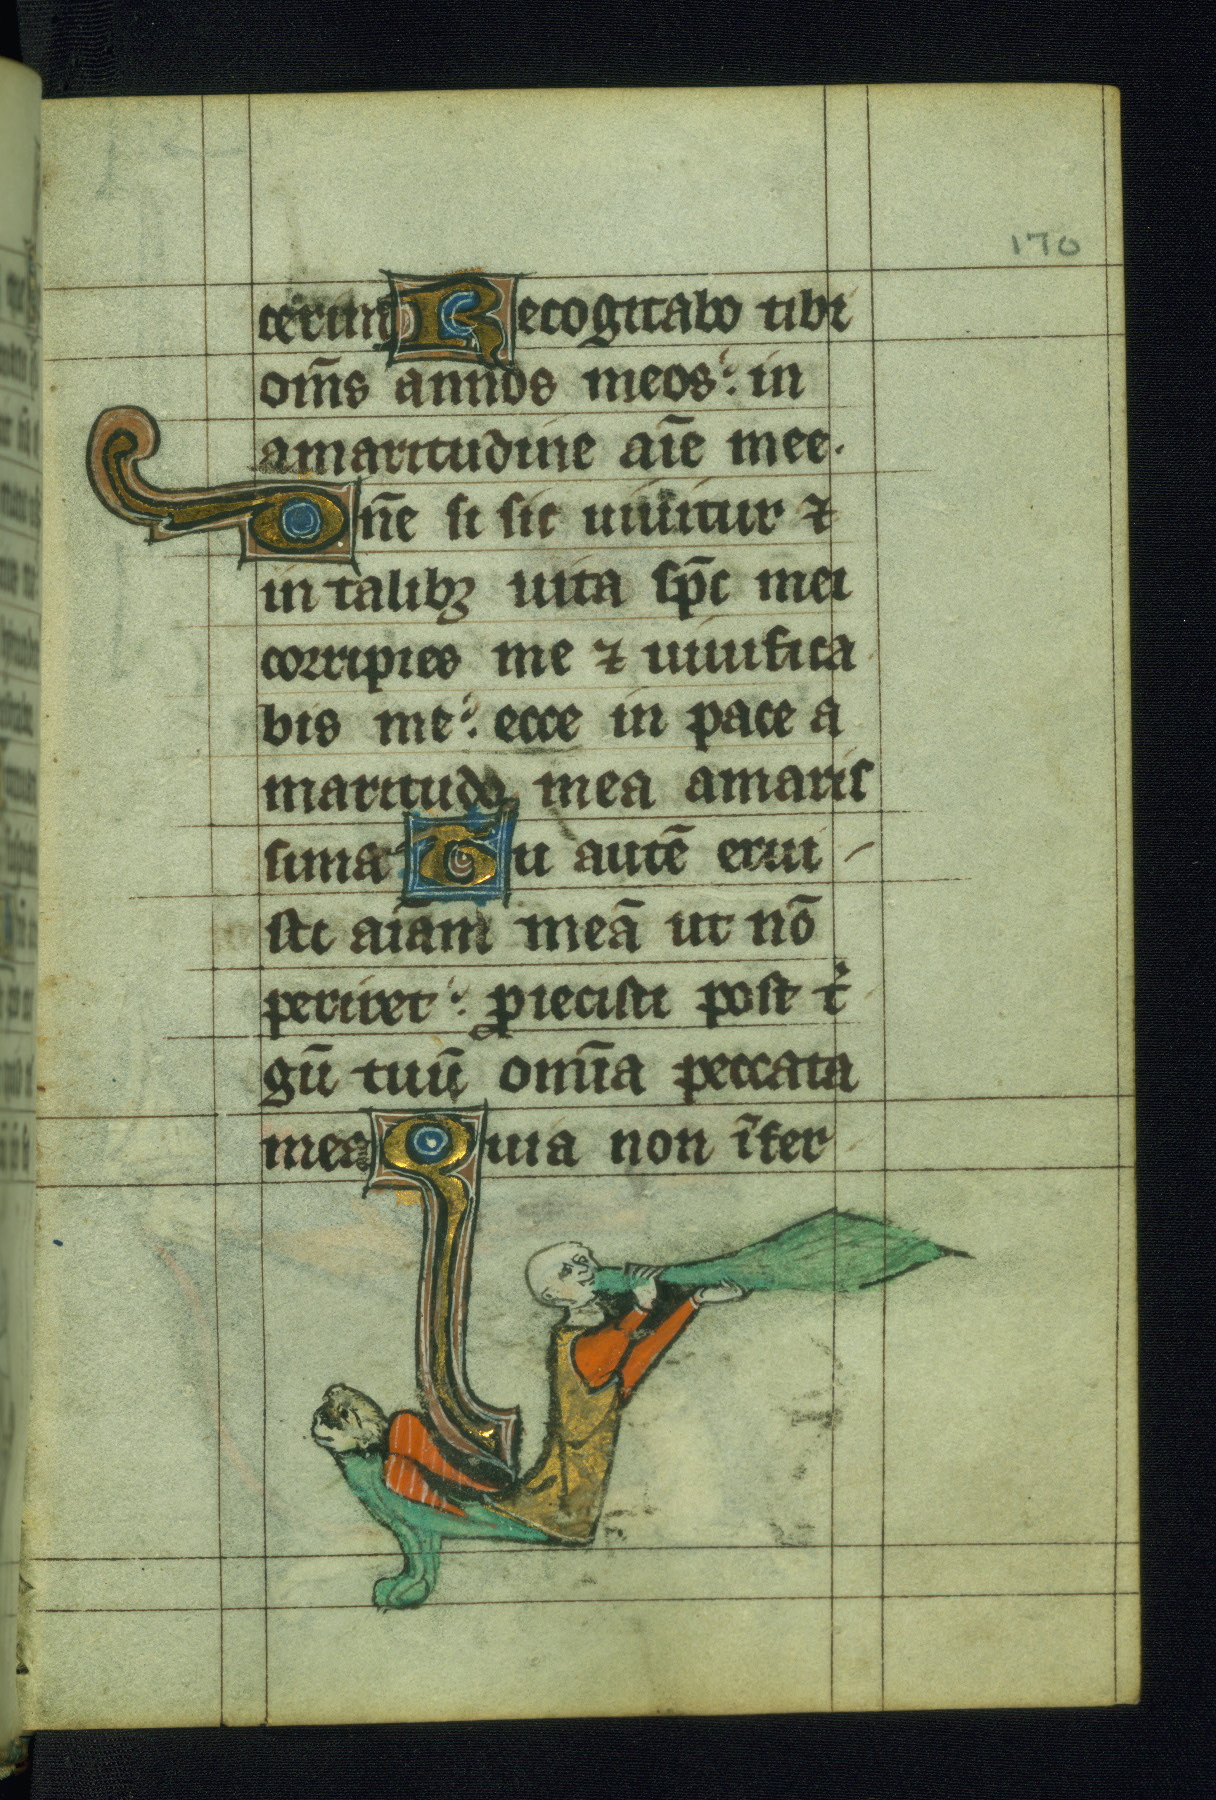 170
cerim Recogitabo tibi
om̄s annos meos: in
amaritudine aīe mee.
Dn̄e si sic uiuitur ⁊
in talibꝫ uita sp̄c mei
corripies me ⁊ uiuifica
bis me: ecce in pace a
maritudo mea amaris
sima Tu autē erui
sti aīam meā ut nō
periret: ꝓiecisti post t̾
gū tuū om̄ia peccata
mea Quia non īfer